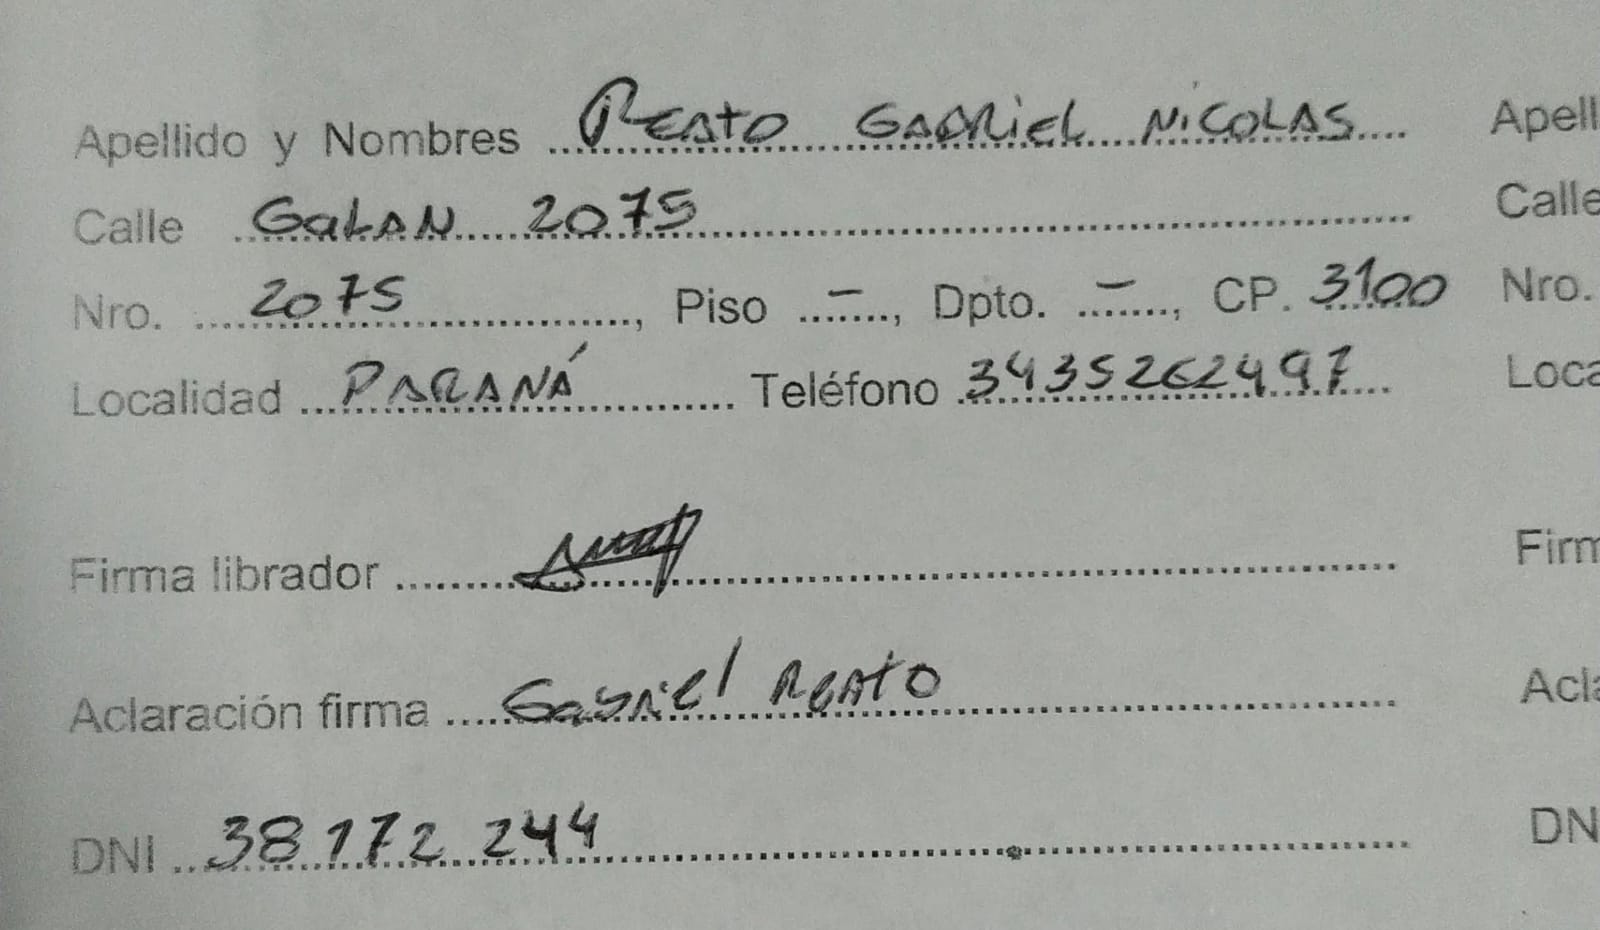 Apellido y Nombres Reato Gabriel Nicolas Apell
Calle Galan 2075 Calle
Nro. 2075, Piso -, Dpto. -, CP. 3100 Nro.
Localidad Paraná Teléfono 3435262497 Loca
Firma librador Firm
Aclaración firma Gabriel Reato Acla
DNI 38 172 244 DN